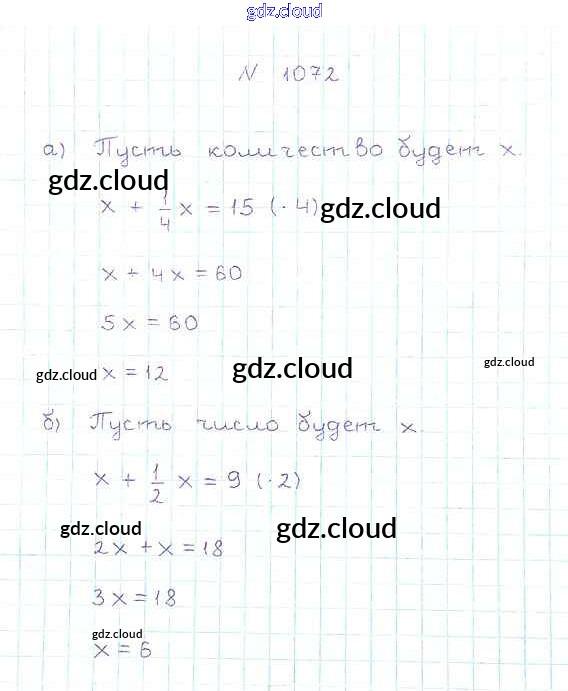 gdz.cloud
N 1072
а) Пусть количество будет x.
gdz.cloud
x + 1/4 x = 15 (· 4) gdz.cloud
x + 4x = 60
5x = 60
gdz.cloud
gdz.cloud x = 12 gdz.cloud
б) Пусть число будет x.
x + 1/2 x = 9 (· 2)
gdz.cloud gdz.cloud
2x + x = 18
3x = 18
gdz.cloud
x = 6